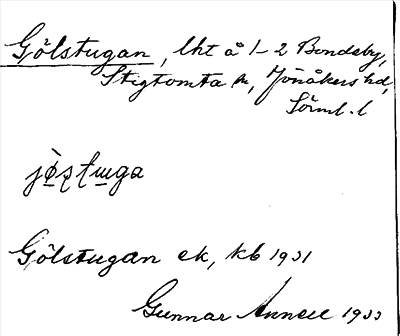 Gölstugan, lht å 1-2 Bondeby,
Stigtomta sn, Jönåkers hd,
Sörml. l
jø̀sţɯga
Gölstugan ek, kb 1931
Gunnar Annell 1933